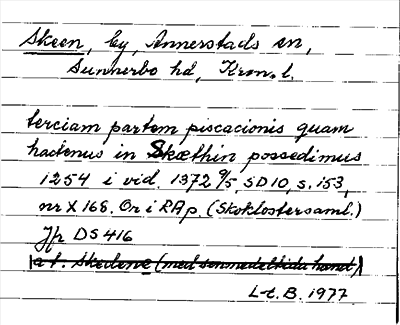 Skeen, by, Annerstads sn,
Sunnerbo hd, Kron. l.
terciam partem piscacionis quam
hactenus in Skæthin possedimus
1254 i vid. 1372 9/5, SD 10, s. 153,
nr X 168. Or i RAp. (Skoklostersaml.)
Jfr DS 416
a t. Skedene (med senmedeltida hand)
L-t. B. 1977